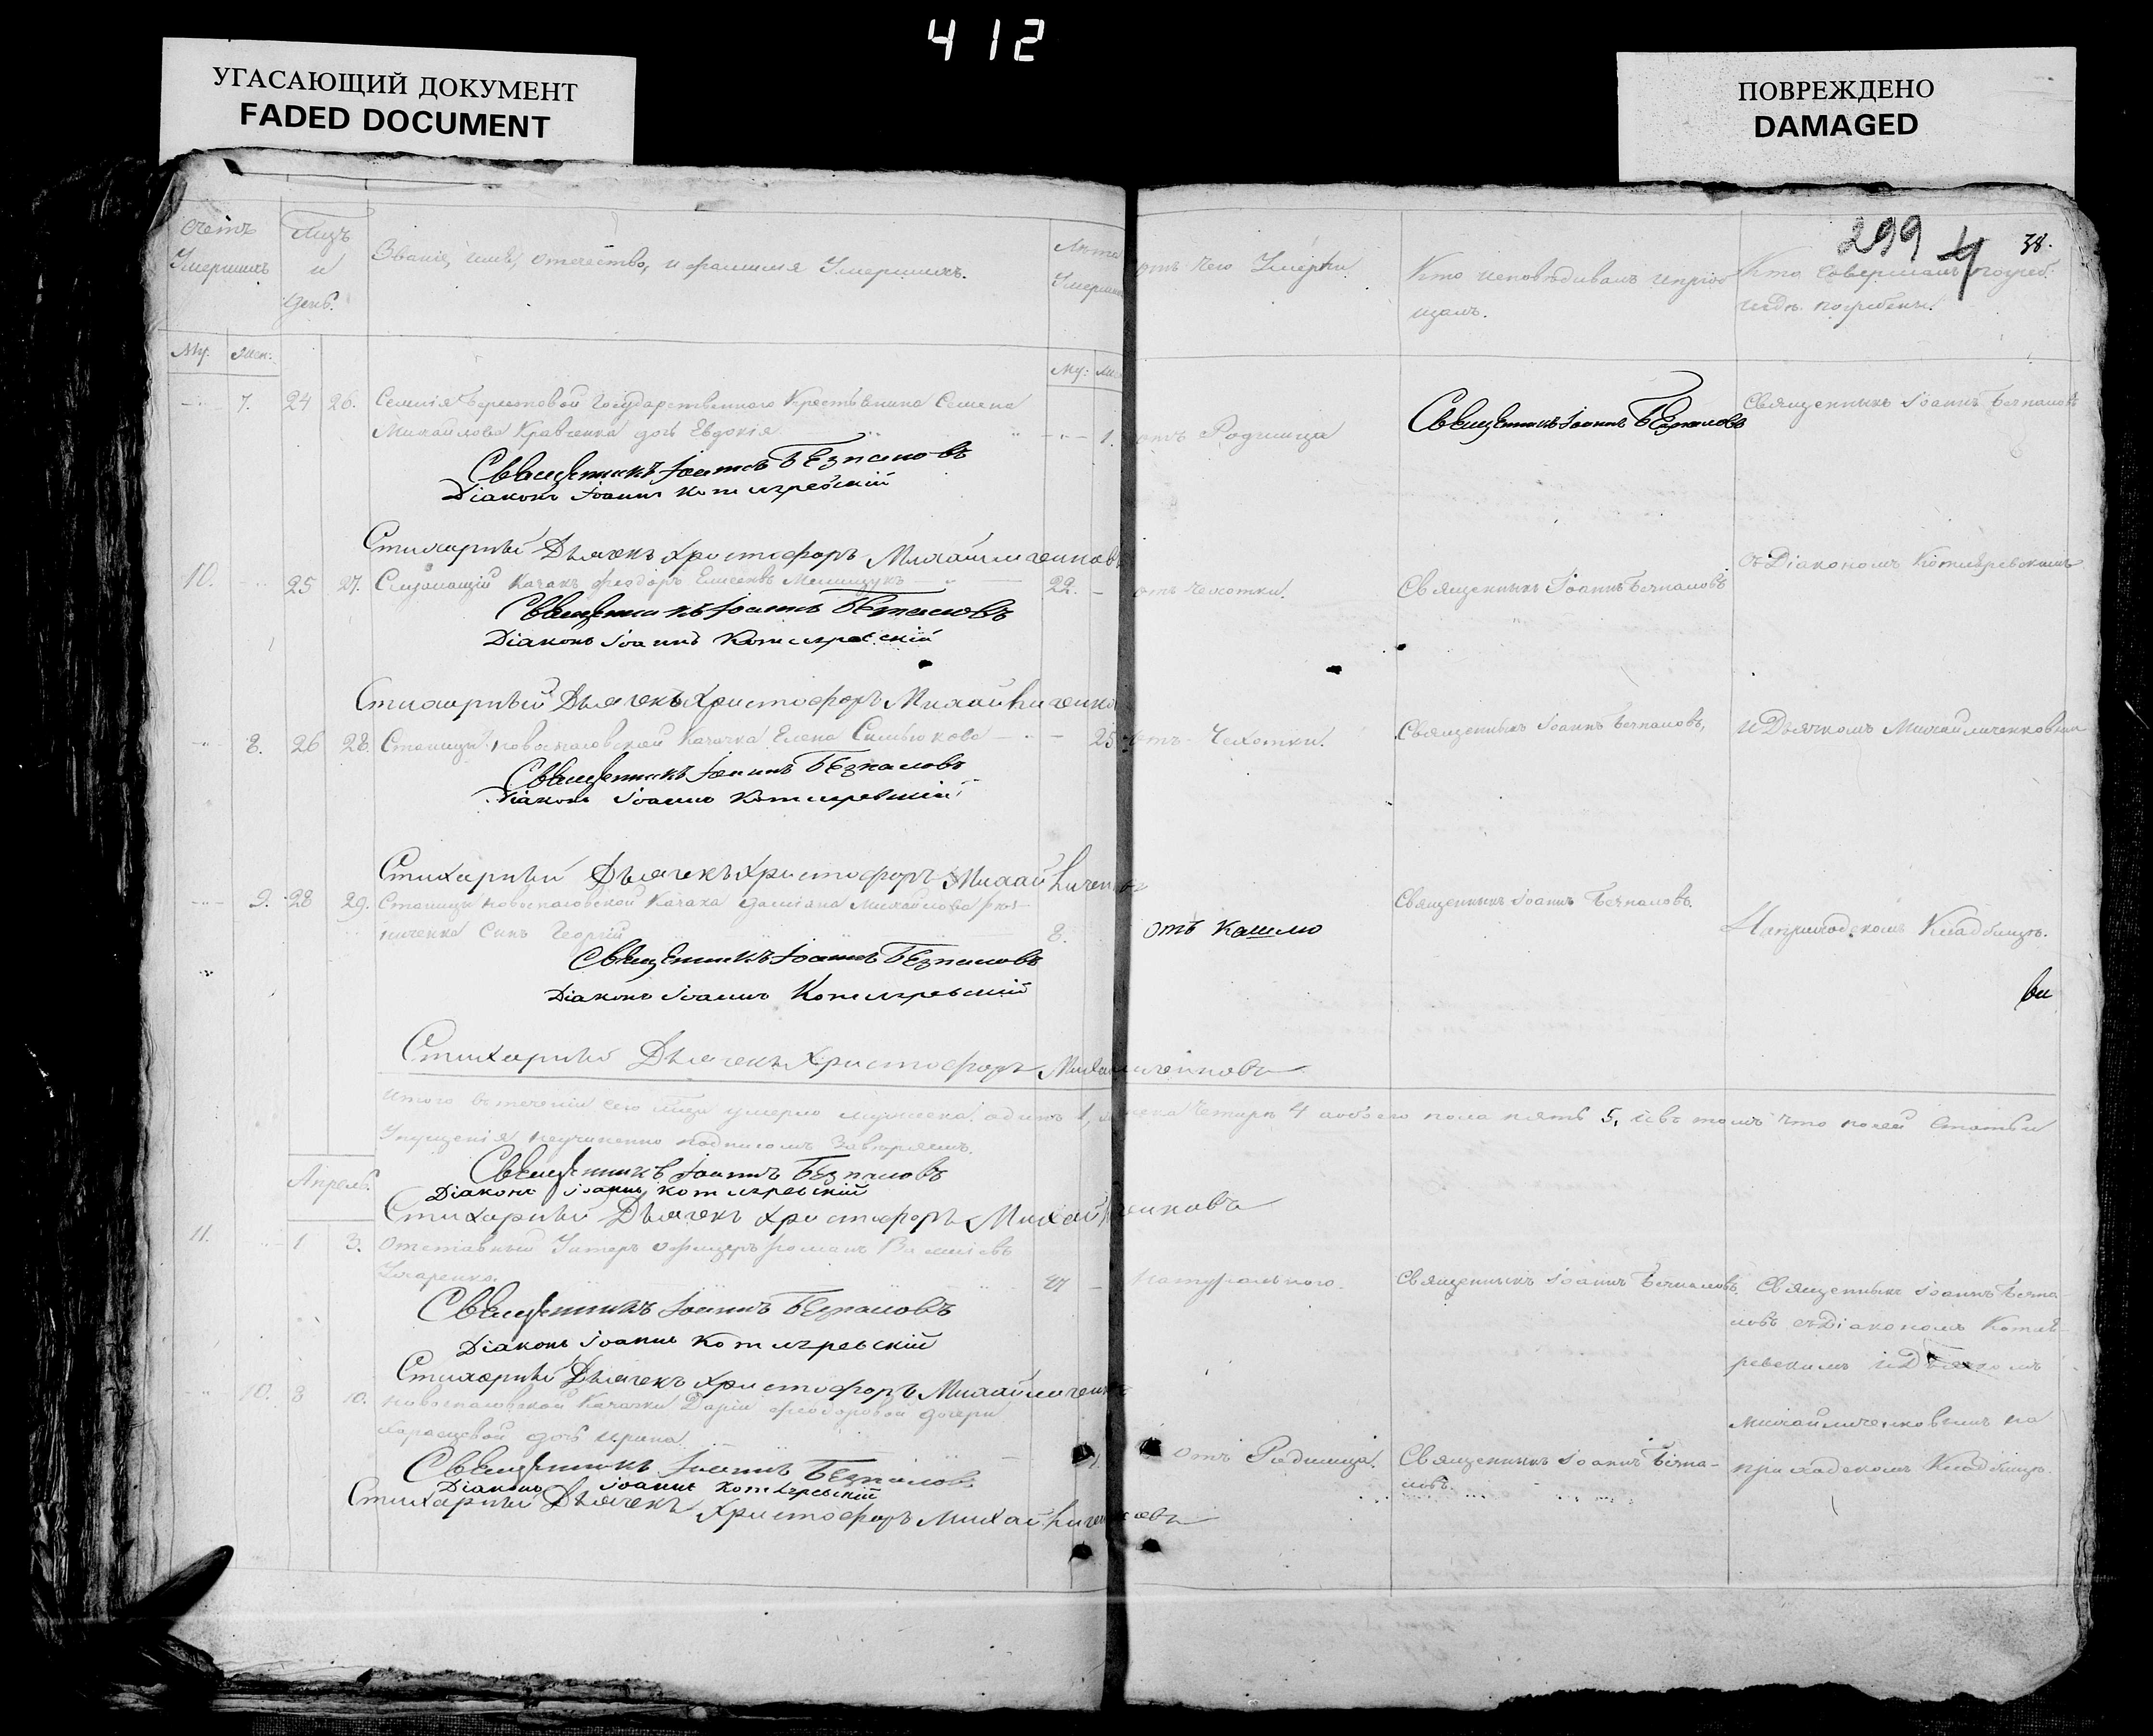 412
УГАСАЮЩИЙ ДОКУМЕНТ
FADED DOCUMENT
ПОВРЕЖДЕНО
DAMAGED
299 4 38.
Счетъ Умершихъ
Мцъ и день.
Званіе, имя, отечество, и фамилія Умершихъ.
Лѣта Умерших
отъ чего Умерли
Кто исповѣдивалъ и пріоб
щалъ.
Кто Совершалъ погреб:
и гдѣ погребены.
Му: Жен:
Му:
7. 24 26. Селенія Берестовой Государственнаго Крестьянина Семена
Михайлова Кравченка дочь Евдокія 1. отъ Родимца
Священникъ Іоаннъ Безпаловъ
Священникъ Іоаннъ Безпаловъ
Священникъ Іоаннъ Безпаловъ
Діаконъ Іоаннъ Котляревскій
Стихарный Дьячекъ Христофоръ Михайличенковъ
10. 25 27. Служащій Казакъ Феодоръ 22. отъ чахотки. Священникъ Іоаннъ Безпаловъ
съ Діакономъ Котляревскимъ
Священникъ Іоаннъ Безпаловъ
Діаконъ Іоаннъ Котляревскій
Стихарный Дьячекъ Христофоръ Михайличенко
8. 26 28. Станицы Новоспасовской Казачка Елена 25 отъ Чахотки. Священникъ Іоаннъ Безпаловъ, и Дьячкомъ Михайличенковым
Священникъ Іоаннъ Безпаловъ
Діаконъ Іоаннъ Котляревскій
Стихарный Дьячекъ Христофоръ Михайличен
9. 28 29. Станицы Новоспасовской Казака Даміана Михайлова
ниченка Сынъ Георгій 8. отъ Кашлю Священникъ Іоаннъ Безпаловъ. На приходскомъ Кладбищѣ.
Священникъ Іоаннъ Безпаловъ
Діаконъ Іоаннъ Котляревскій
Стихарный Дьячекъ Христофоръ Михайличенковъ
Итого въ теченіи сего Мцъа умерло мужеска одинъ 1, женска Четыре 4 а обоего пола пять 5, и въ томъ что по сей Статьи
Упущенія неучинено подписомъ Завѣряемъ.
Священникъ Іоаннъ Безпаловъ
Діаконъ Іоаннъ Котляревскій
Стихарный Дьячекъ Христофоръ Михайличенковъ
Апрель.
11. 1 3. Отставный Унтеръ Офицеръ Романъ Василіевъ
47 Натурального Священникъ Іоаннъ Безпаловъ. Священникъ Іоаннъ Безпа
ловъ съ Діакономъ Котля
ревскимъ и Дьячкомъ
Михайличенковымъ на
приходскомъ Кладбищѣ.
Священникъ Іоаннъ Безпаловъ
Діаконъ Іоаннъ Котляревскій
Стихарный Дьячекъ Христофоръ Михайличен
10. 8 10. Новоспасовской Казачки Даріи Феодоровой дочери
дочь Ирина отъ Родимца. Священникъ Іоаннъ Безпа-
ловъ.
Священникъ Іоаннъ Безпаловъ
Діаконъ Іоаннъ Котляревскій
Стихарный Дьячекъ Христофоръ Михайличенковъ